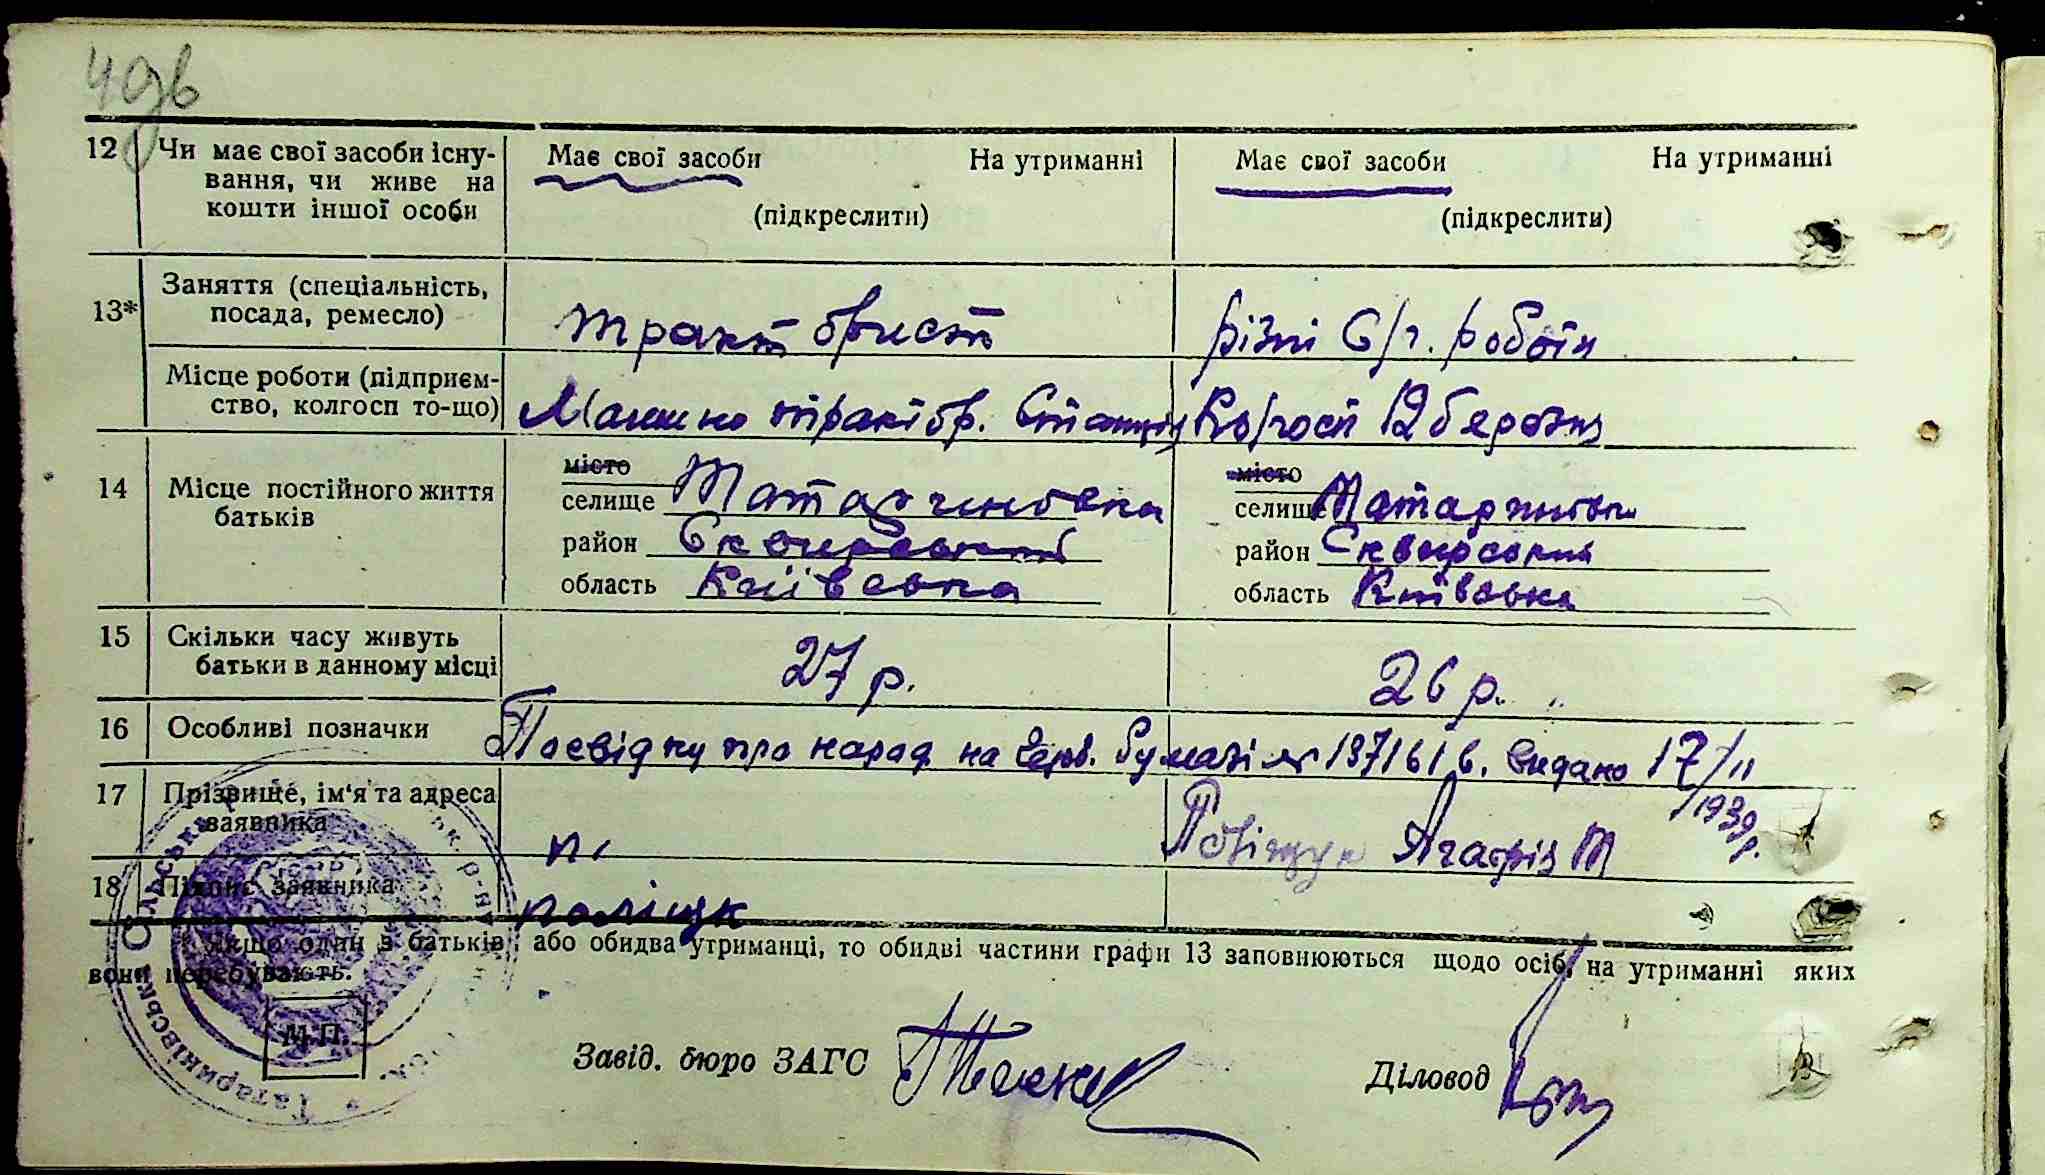 49дв
12 Чи має свої засоби існу- Має свої засоби На утриманні Має свої засоби На утриманні
вання, чи живе на
кошти іншої особи (підкреслити) (підкреслити)
13* Заняття (спеціальність,
посада, ремесло) тракт брист різні с/г. роботи
Місце роботи (підприєм-
ство, колгосп то-що) Машино трактор. Станція Колгосп 12 березня
14 Місце постійного життя
батьків
місто місто
селище Татарчиновка селище
район Сквирський район Сквирський
область Київська область Київська
15 Скільки часу живуть
батьки в данному місці 27 р. 26 р.
16 Особливі позначки Посвідку про народ на герб. бумазі № 197161 в. видано 17/II
1939 р.
17 Прізвище, ім'я та адреса
заявника п. Поліщук Агафія Т
18 Підпис заявника поліщук
Якщо один з батьків, або обидва утриманці, то обидві частини графи 13 заповнюються щодо осіб, на утриманні яких
вони перебувають.
М.П.
Завід. бюро ЗАГС Діловод